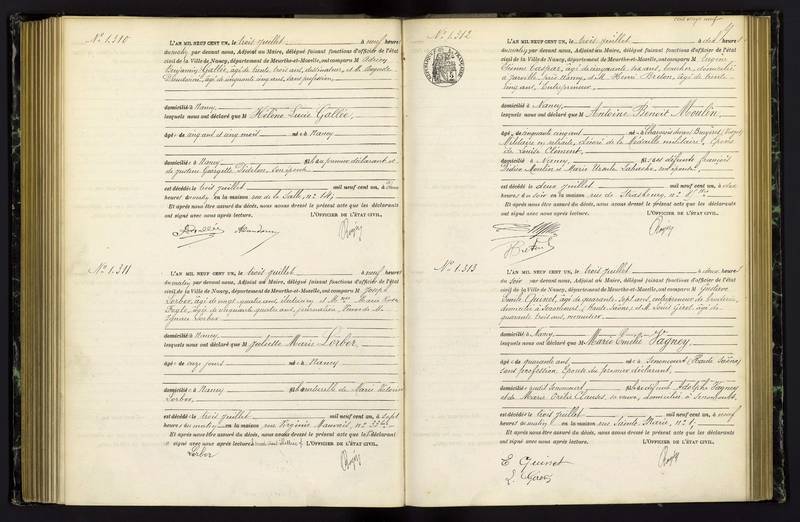 N° 1.310
L'AN MIL NEUF CENT UN, le trois juillet à neuf heures
du matin par devant nous, Adjoint au Maire, délégué faisant fonctions d'officier de l'état
civil de la Ville de Nancy, département de Meurthe-et-Moselle, ont comparu M Adrien
Benjamin Gallée, âgé de trente trois ans, dessinateur, et M. Auguste
âgé de cinquante cinq ans, sans profession,
domicilié à Nancy
lesquels nous ont déclaré que M Hélène Lucie Gallée,
âgé e de cinq ans et cinq mois née à Nancy
domicilié e à Nancy fille du premier déclarant et
de Justine Georgette
est décédé e le trois juillet mil neuf cent un, à
heures du matin, en la maison rue de la Salle, n° 14;
Et après nous être assuré du décès, nous avons dressé le présent acte que les déclarants
ont signé avec nous après lecture. L'OFFICIER DE L'ÉTAT CIVIL,
N° 1.311
L'AN MIL NEUF CENT UN, le trois juillet à neuf heures
du matin par devant nous, Adjoint au Maire, délégué faisant fonctions d'officier de l'état
civil de la Ville de Nancy, département de Meurthe-et-Moselle, ont comparu M Joseph
Lorber, âgé de vingt quatre ans, et Mme Marie Rose
âgée de cinquante quatre ans, journalière, veuve de M.
Ignace Lorber
domicilié s à Nancy
lesquels nous ont déclaré que M Juliette Marie Lorber,
âgé e de onze jours née à Nancy
domicilié e à Nancy fille naturelle de Marie Victorine
Lorber,
est décédé e le trois juillet mil neuf cent un, à sept
heures du matin en la maison rue Virginie Mauvais, n°
Et après nous être assuré du décès, nous avons dressé le présent acte que le déclarant
a signé avec nous après lecture L'OFFICIER DE L'ÉTAT CIVIL,
Lorber
N° 1.312
L'AN MIL NEUF CENT UN, le trois juillet à dix heures
du matin par devant nous, Adjoint au Maire, délégué faisant fonctions d'officier de l'état
civil de la Ville de Nancy, département de Meurthe-et-Moselle, ont comparu M Eugène
Étienne âgé de cinquante six ans, boucher, domicilié
à Jarville près Nancy, et M. Henri Breton, âgé de trente
cinq ans, Entrepreneur,
domicilié à Nancy,
lesquels nous ont déclaré que M Antoine Benoit Moulin,
âgé de cinquante cinq ans né à
Militaire en retraite, décoré de la Médaille militaire, Époux
de Louise Clément
domicilié à Nancy, fils des défunts François
Isidore Moulin et Marie Ursule
est décédé le deux juillet mil neuf cent un, à
heures du soir en la maison rue de Strasbourg, n°
Et après nous être assuré du décès, nous avons dressé le présent acte que les déclarants
ont signé avec nous après lecture. L'OFFICIER DE L'ÉTAT CIVIL,
Breton
N° 1.313
L'AN MIL NEUF CENT UN, le trois juillet à deux heures
du soir par devant nous, Adjoint au Maire, délégué faisant fonctions d'officier de l'état
civil de la Ville de Nancy, département de Meurthe-et-Moselle, ont comparu M Gustave
Émile Guinet, âgé de quarante sept ans, entrepreneur de
domicilié à (Haute Saône) et M. Louis Girot, âgé de
quarante trois ans, menuisier
domicilié à Nancy
lesquels nous ont déclaré que Me Marie Émélie Vagney,
âgé e de quarante ans née à Senoncourt (Haute Saône)
sans profession, Épouse du premier déclarant,
domicilié e audit Senoncourt, fille de défunt Adolphe Vagney
et de Marie sa veuve, domiciliée à Senoncourt,
est décédé e le trois juillet mil neuf cent un, à neuf
heures du matin, en la maison rue Sainte-Marie, n° 1;
Et après nous être assuré du décès, nous avons dressé le présent acte que les déclarants
ont signé avec nous après lecture. L'OFFICIER DE L'ÉTAT CIVIL,
E Guinet
L. Girot